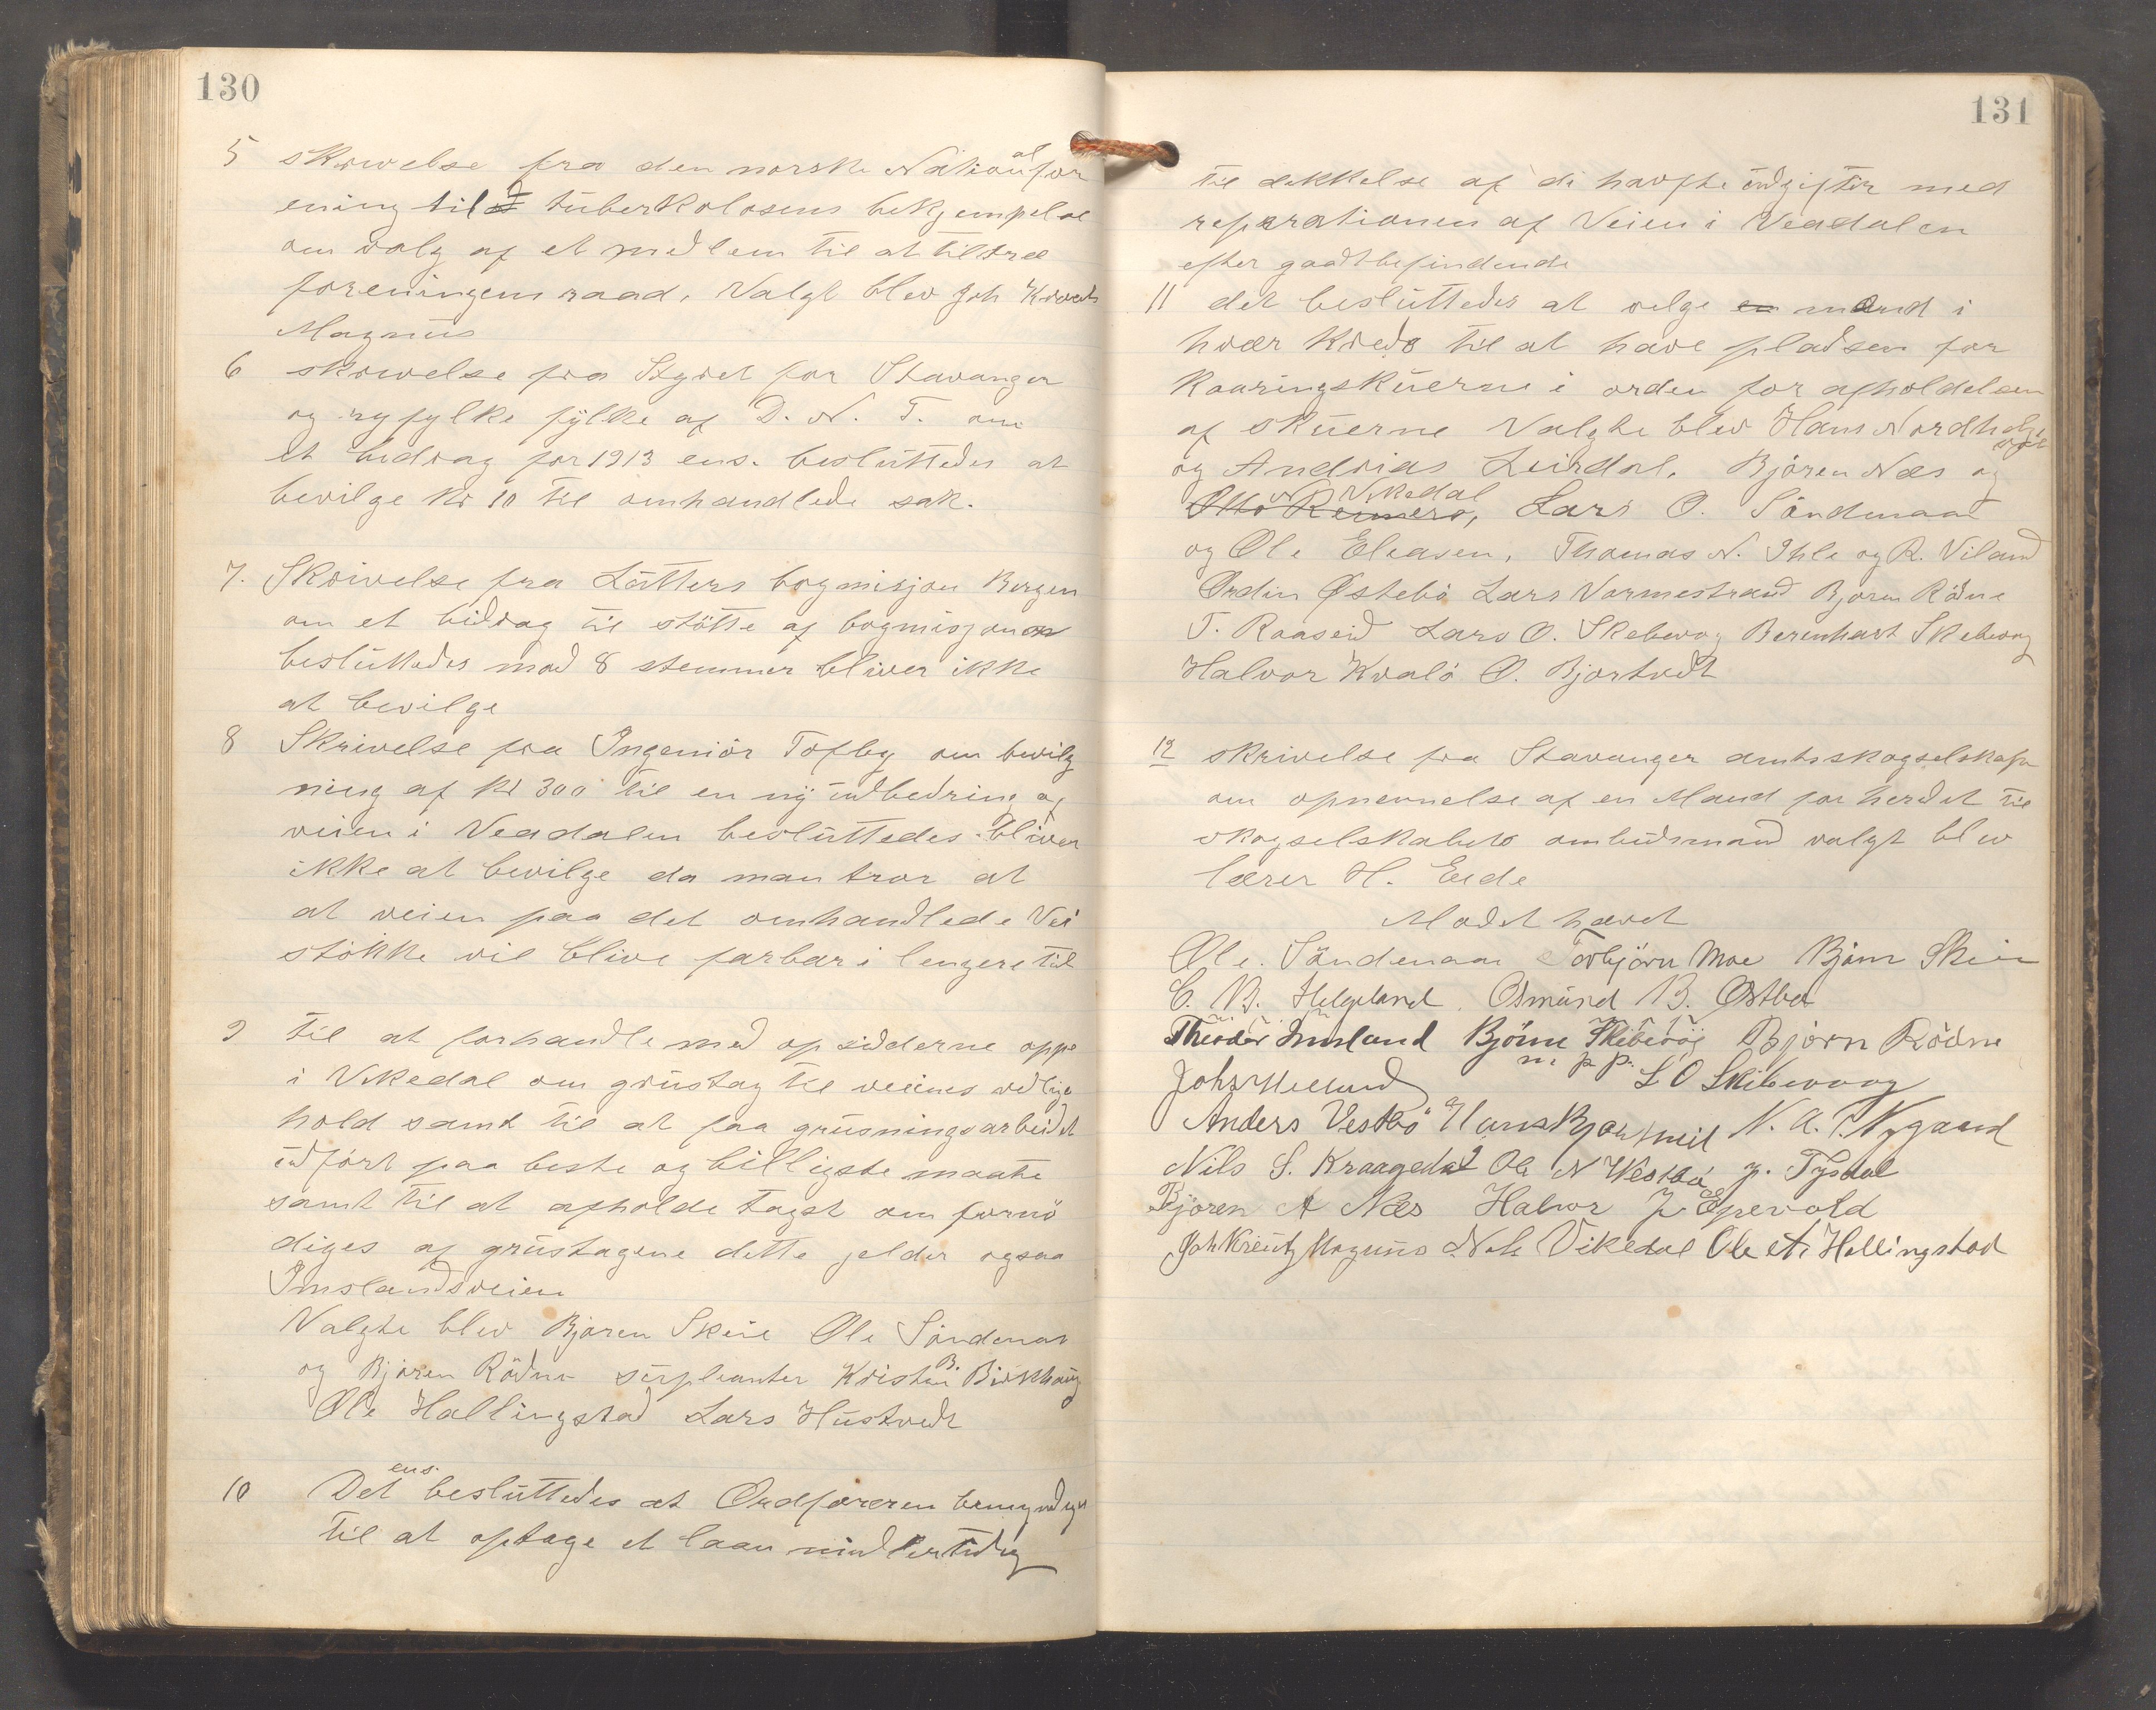 130
5 skrivelse fra den norske National for
ening til tuberkolosens bekjempelse
om valg af et medlem til at tiltræ
foreningens raad. Valgt blev Joh Kreutz
Magnus
6 skrivelse fra Styret for Stavanger
og ryfylke fylke af D. N. T. om
et bedrag for 1913 ens. besluttedes at
bevilge Kr 10 til omhandlede sak.
7. Skrivelse fra Lutters bogmisjon Bergen
om et bidrag til støtte af bogmisjonen
besluttedes mod 8 stemmer bliver ikke
at bevilge
8 Skrivelse fra Ingeniör Tofley om bevilg
ning af kr 300 til en ny udbedring af
veien i Veadalen besluttedes bliver
ikke at bevilge da man tror at
at veien paa det omhandlede Vei
stökke vil blive farbar i lengere tid
9 til at forhandle med opsidderne oppe
i Vikedal om grustag til veiens vedlige
hold samt til at faa grusningsarbeidet
udfört paa beste og billigste maate
samt til at afholde tagst om fornö
diges af grustagene dette jelder ogsaa
Imslandsveien
Valgte blev Björen Skeie Ole Söndenaa
og Björen Rödne surpleanter Kristen B. Birkhaug
Ole Hallingstad Lars Hustvedt
10 Det ens. besluttedes at Ordföreren bemyndiges
til at optage et laan midlertidig
131
til dekkelse af de havfte udgifter med
reparationen af Veien i Veadalen
efter godtbefindende
11 det besluttedes at velge en mand i
hver Kreds til at have pladsen for
Kaaringskuerne i orden for afholdelsen
af skuerne Valgte blev Hans Nordhelje
og Andreas Leirdal. Björen Næs og
Otto Reimers, N. Vikedal Lars O. Söndenaa
og Ole Eleasen, Thomas N. Ihle og R. Viland
Ordin Østebö Lars Varmestrand Bjoren Rödne
T. Raaseid Lars O. Skebevog Berenhart Skebevog
Halvor Kvalö O. Bjortvedt
12 skrivelse fra Stavanger amtsskogselskap
om opnevnelse af en Mand for herdet til
skogselskabets ombudsmand valgt blev
lærer H. Eide
Mødet hævet
Ole. Söndenaa Torbjörn Moe Bjørn Skeie
C. B. Helgeland. Osmund B. Østbø
Theodor Imsland Bjørne Skibevog Bjørn Rödne
m. p. p. L O Skibevaag
Anders Vestbö N. A. Nygaard
Nils S. Kraagedal Ole N Vestbö J. Tysdal
Björen A Næs Halvor J. Epevold
Joh Kreutz Magnus Nels Vikedal Ole A. Hallingstad